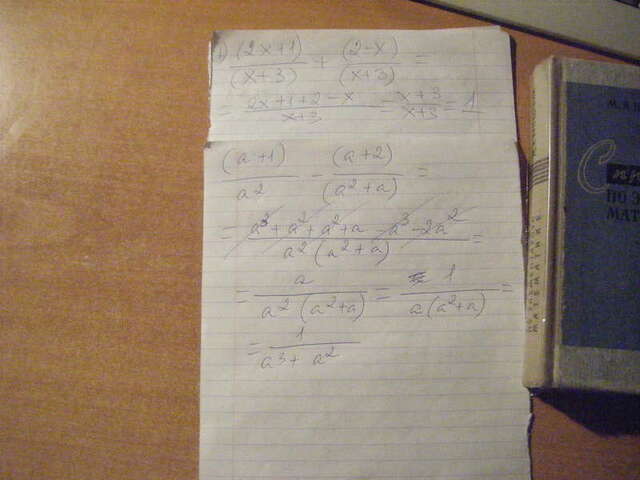 1) (2x+1)/(x+3) + (2-x)/(x+3) =
= (2x+1+2-x)/(x+3) = (x+3)/(x+3) = 1
(a+1)/a² - (a+2)/(a²+a) =
= (a³+a²+a²+a-a³-2a²)/(a²(a²+a)) =
= a/(a²(a²+a)) = 1/(a(a²+a)) =
= 1/(a³+a²)
МАТЕМАТИКЕ